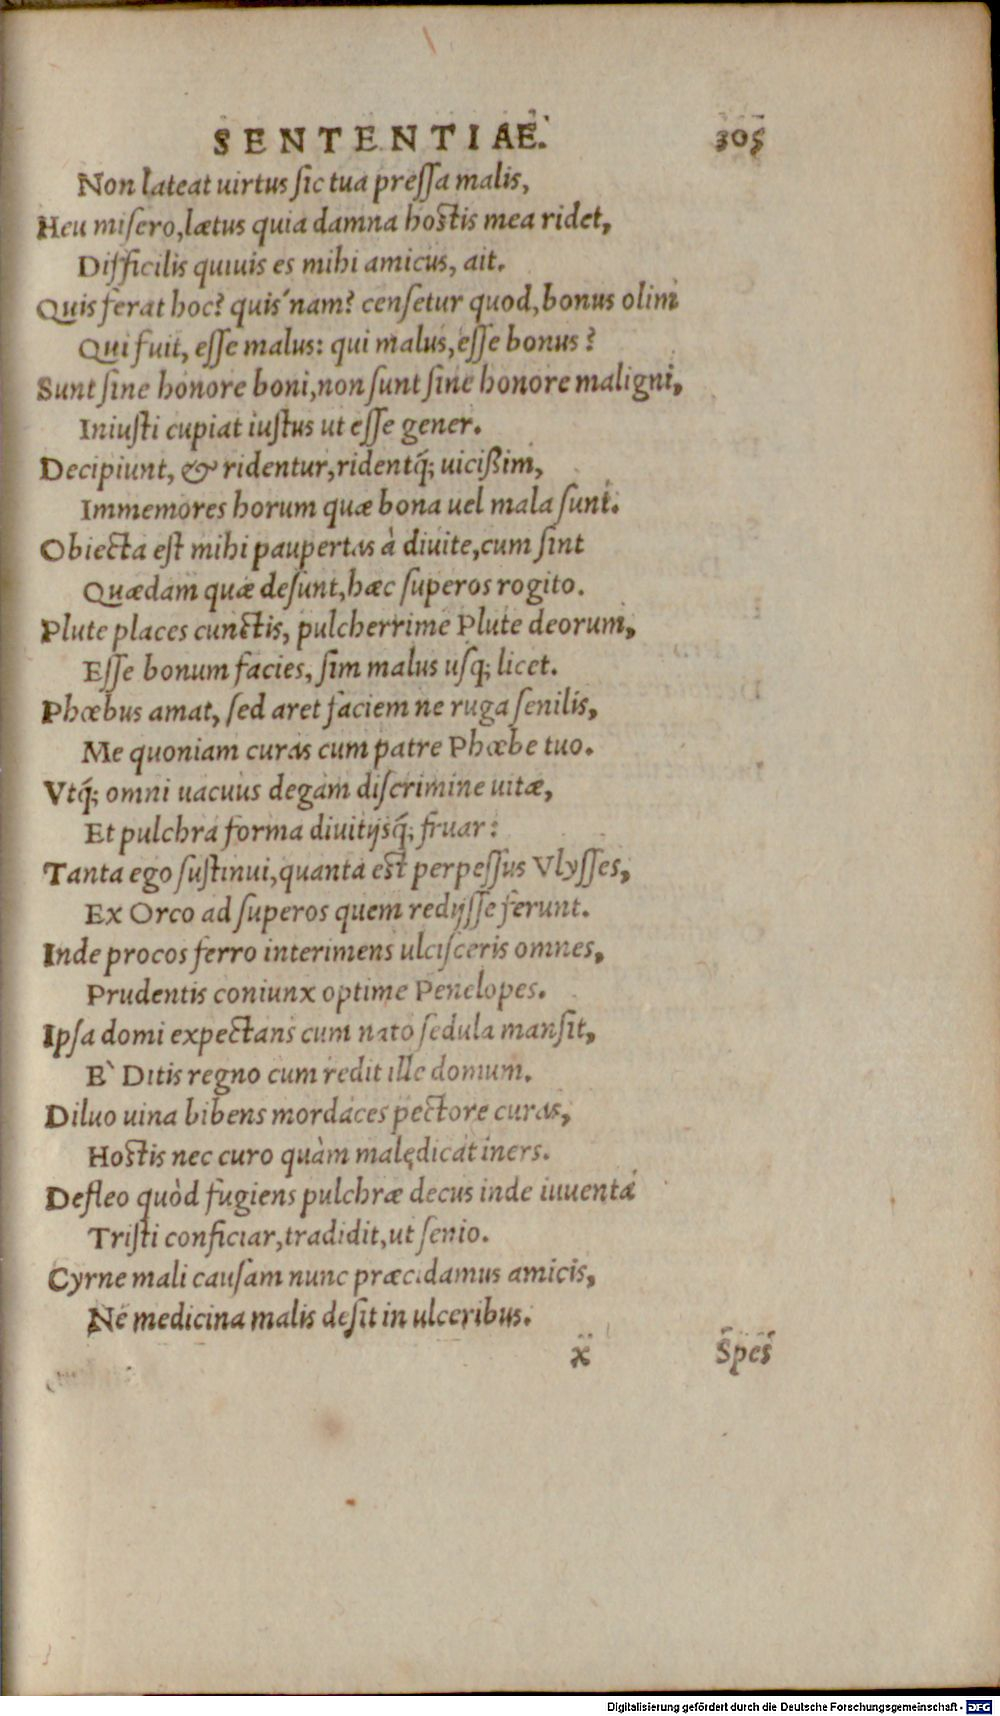 SENTENTIAE. 305
Non lateat uirtus sic tua pressa malis,
Heu misero, lætus quia damna hostis mea ridet,
Difficilis quiuis es mihi amicus, ait.
Quis ferat hoc? quis'nam? censetur quod, bonus olim
Qui fuit, esse malus: qui malus, esse bonus?
Sunt sine honore boni, non sunt sine honore maligni,
Iniusti cupiat iustus ut esse gener.
Decipiunt, & ridentur, ridentq́; uicißim,
Immemores horum quæ bona uel mala sunt.
Obiecta est mihi paupertas à diuite, cum sint
Quædam quæ desunt, hæc superos rogito.
Plute places cunctis, pulcherrime Plute deorum,
Esse bonum facies, sim malus usq; licet.
Phœbus amat, sed aret faciem ne ruga senilis,
Me quoniam curas cum patre Phœbe tuo.
Vtq́; omni uacuus degam discrimine uitæ,
Et pulchra forma diuitijsq́; fruar:
Tanta ego sustinui, quanta est perpessus Vlysses,
Ex Orco ad superos quem redijsse ferunt.
Inde procos ferro interimens ulcisceris omnes,
Prudentis coniunx optime Penelopes.
Ipsa domi expectans cum nato sedula mansit,
E` Ditis regno cum redit ille domum.
Diluo uina bibens mordaces pectore curas,
Hostis nec curo quàm malędicat iners.
Defleo quòd fugiens pulchræ decus inde iuuentá
Tristi conficiar, tradidit, ut senio.
Cyrne mali causam nunc præcidamus amicis,
Ne medicina malis desit in ulceribus.
x Spes
Digitalisierung gefördert durch die Deutsche Forschungsgemeinschaft - DFG